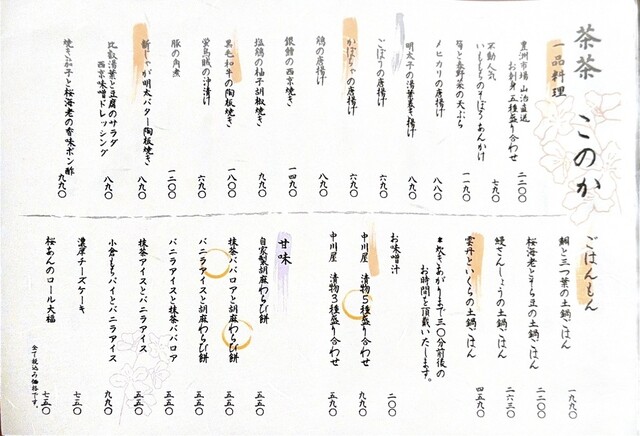 茶茶 このか
一品料理
豊洲市場 山治直送
お刺身 五種盛り合わせ 二二〇〇
不動人気
いももちのそぼろあんかけ 七九〇
筍と春野菜の天ぷら 一一九〇
メヒカリの唐揚げ 八八〇
明太子の湯葉巻き揚げ 八九〇
ごぼうの唐揚げ 六九〇
かぼちゃの唐揚げ 六九〇
鶏の唐揚げ 八九〇
銀鱈の西京焼き 一四九〇
塩鶏の柚子胡椒焼き 九九〇
黒毛和牛の陶板焼き 一八〇〇
蛍烏賊の沖漬け 六九〇
豚の角煮 一二〇〇
新じゃが明太バター陶板焼き 八九〇
比叡湯葉と豆腐のサラダ
西京味噌ドレッシング 八九〇
焼き茄子と桜海老の香味ポン酢 九九〇
ごはんもん
鯛と三つ葉の土鍋ごはん 一九九〇
桜海老とそら豆の土鍋ごはん 二二〇〇
鰻さんしょうの土鍋ごはん 二六三〇
雲丹といくらの土鍋ごはん 四五九〇
*炊きあがりまで三〇分前後の
お時間を頂戴いたします。
お味噌汁 二〇〇
中川屋 漬物5種盛り合わせ 九九〇
中川屋 漬物3種盛り合わせ 五九〇
甘味
自家製胡麻わらび餅 五五〇
抹茶ババロアと胡麻わらび餅 五五〇
バニラアイスと胡麻わらび餅 五五〇
バニラアイスと抹茶ババロア 五五〇
抹茶アイスとバニラアイス 五五〇
小倉もちパイとバニラアイス 九九〇
濃厚チーズケーキ 七五〇
桜あんのロール大福 七五〇
全て税込み価格です。